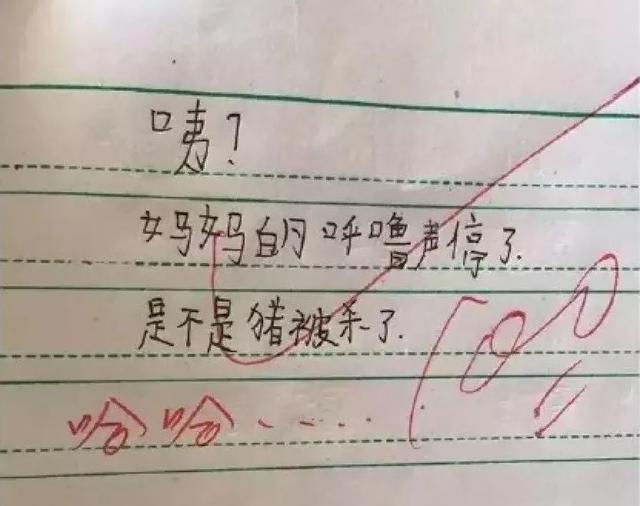 咦?
妈妈的呼噜声停了.
是不是猪被杀了.
哈哈.....
100